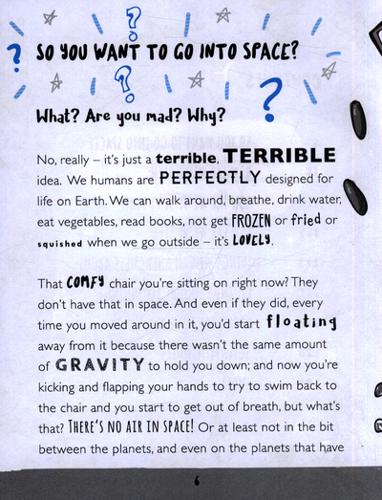 SO YOU WANT TO GO INTO SPACE?
What? Are you mad? Why?
No, really – it's just a terrible, TERRIBLE
idea. We humans are PERFECTLY designed for
life on Earth. We can walk around, breathe, drink water,
eat vegetables, read books, not get FROZEN or fried or
squished when we go outside – it's LOVELY.
That COMFY chair you're sitting on right now? They
don't have that in space. And even if they did, every
time you moved around in it, you'd start floating
away from it because there wasn't the same amount
of GRAVITY to hold you down; and now you're
kicking and flapping your hands to try to swim back to
the chair and you start to get out of breath, but what's
that? THERE'S NO AIR IN SPACE! Or at least not in the bit
between the planets, and even on the planets that have
6